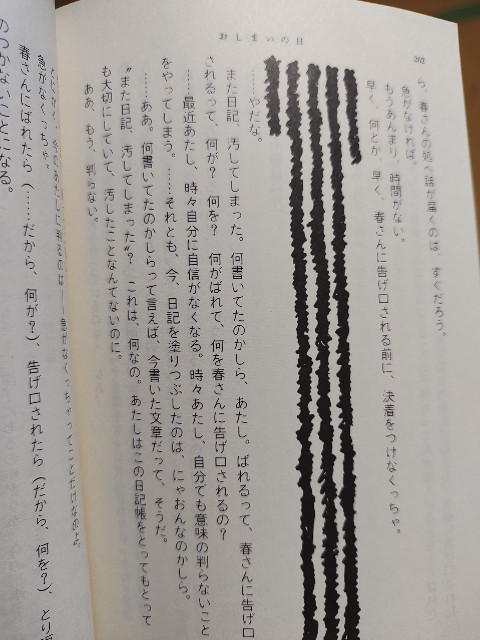 おしまいの日
202
ら、春さんの処へ話が届くのは、すぐだろう。
急がなければ。
もうあんまり、時間がない。
早く、何とか、早く、春さんに告げ口される前に、決着をつけなくっちゃ。
……やだな。
また日記、汚してしまった。何書いてたのかしら、あたし。ばれるって、春さんに告げ口
されるって、何が？何を？何がばれて、何を春さんに告げ口されるの？
……最近あたし、時々自分に自信がなくなる。時々あたし、自分でも意味の判らないこと
をやってしまう。……それとも、今、日記を塗りつぶしたのは、にゃおんなのかしら。
……ああ。何書いてたのかしらって言えば、今書いた文章だって、そうだ。
“また日記、汚してしまった”？これは、何なの。あたしはこの日記帳をとってもとって
も大切にしていて、汚したことなんてないのに。
ああ、もう、判らない。
とにかく、今のあたしに判るのは――急がなくっちゃってことだけなのよ。
急がなくっちゃ。
春さんにばれたら（……だから、何が？）、告げ口されたら（だから、何を？）、とり返
のつかないことになる。